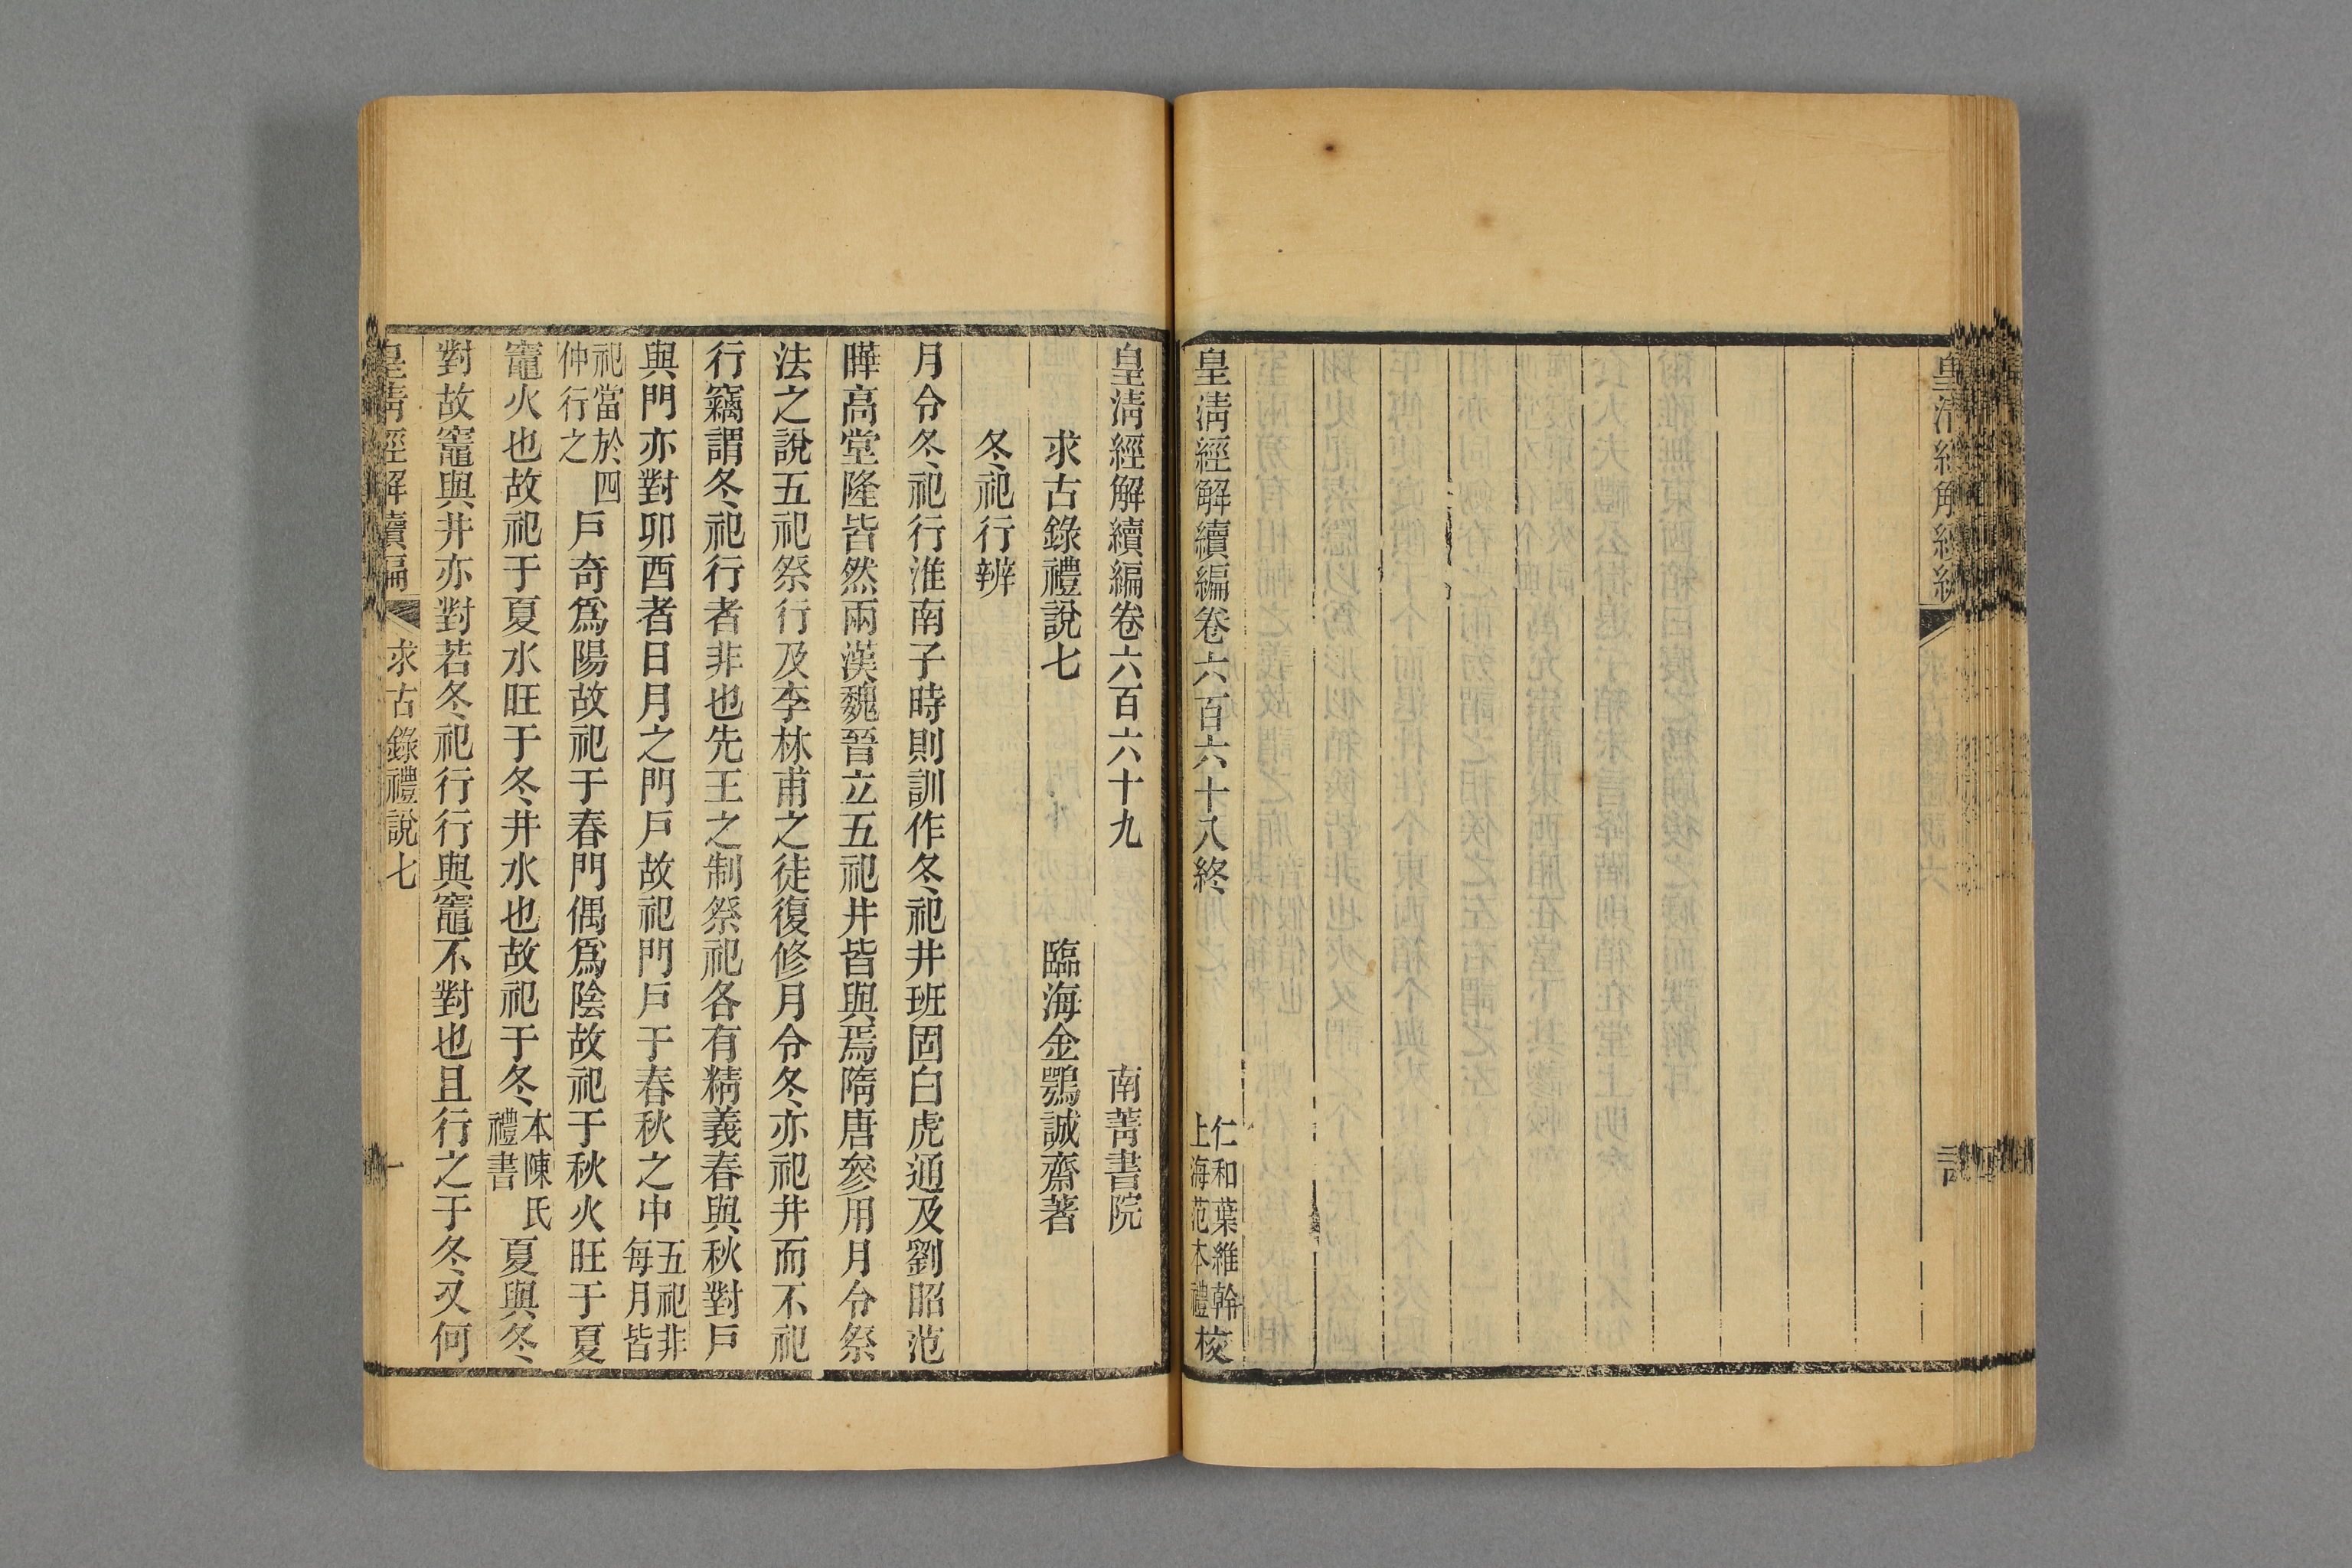 皇清經解續編卷六百六十八終
仁和葉維幹
上海范本禮校
皇清經解續編卷六百六十九
南菁書院
求古錄禮說七
臨海金鶚誠齋著
冬祀行辨
月令冬祀行淮南子時則訓作冬祀井班固白虎通及劉昭范
曄高堂隆皆然兩漢魏晉立五祀井皆與焉隋唐參用月令祭
法之說五祀祭行及李林甫之徒復修月令冬亦祀井而不祀
行竊謂冬祀行者非也先王之制祭祀各有精義春與秋對戶
與門亦對卯酉者日月之門戶故祀門戶于春秋之中五祀非每月皆
祀當於四仲行之戶奇爲陽故祀于春門偶爲陰故祀于秋火旺于夏
竈火也故祀于夏水旺于冬井水也故祀于冬本陳氏禮書夏與冬
對故竈與井亦對若冬祀行行與竈不對也且行之于冬又何
皇清經解續編
求古錄禮說七
一